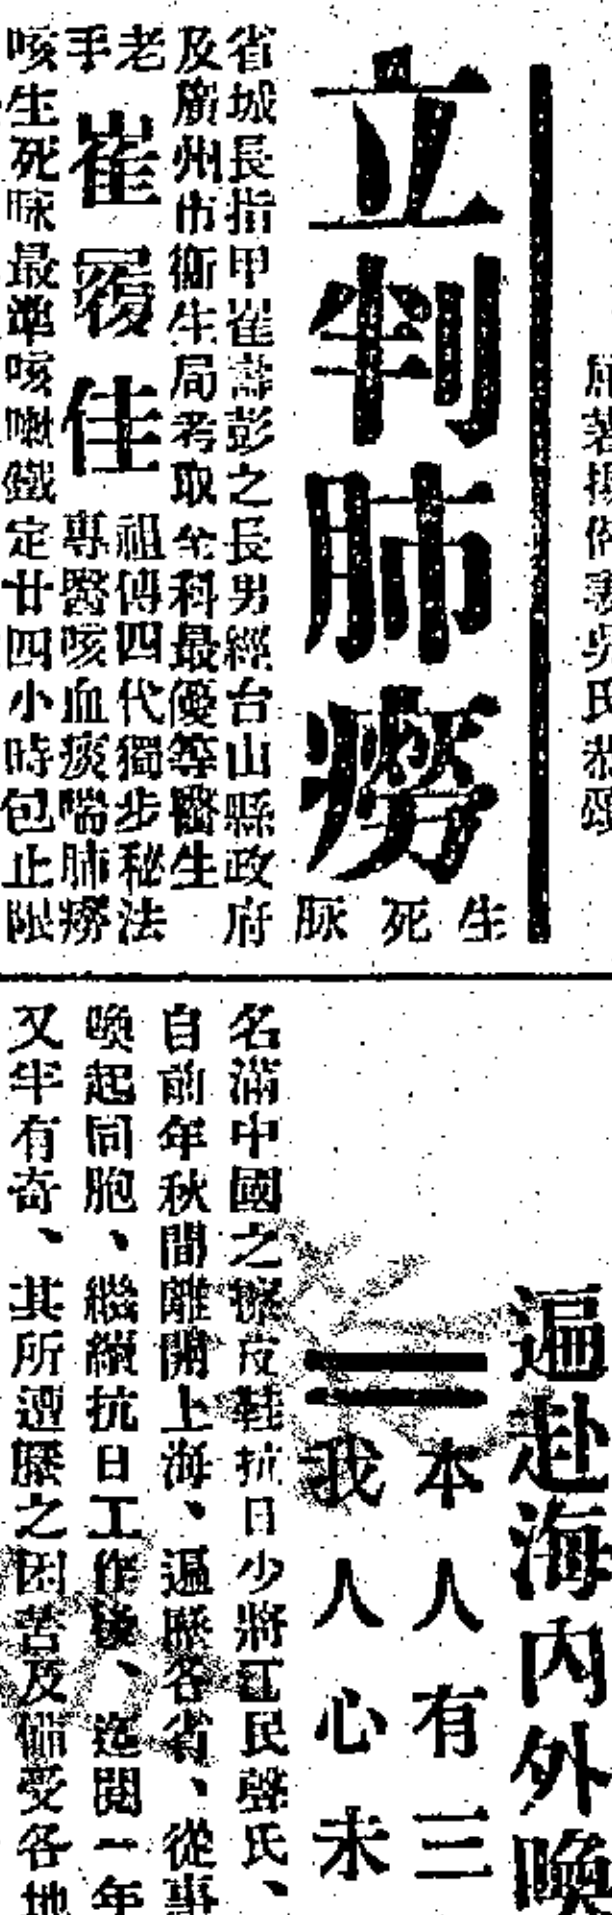 立判肺癆
生死脉
省城長指甲崔壽彭之長男經台山縣政府
及廣州市衛生局考取全科最優等醫生
老手
崔履佳
祖傳四代獨步秘法
專醫咳血痰喘肺癆
咳生死脉最準咳嗽鐵定廿四小時包止限
遍赴海內外喚
本人有三
我人心未
名滿中國之擦皮鞋抗日少將江民聲氏、
自前年秋間離開上海、遍歷各省、從事
喚起同胞、繼續抗日工作後、迄閱一年
又半有奇、其所遭歷之困苦及備受各地